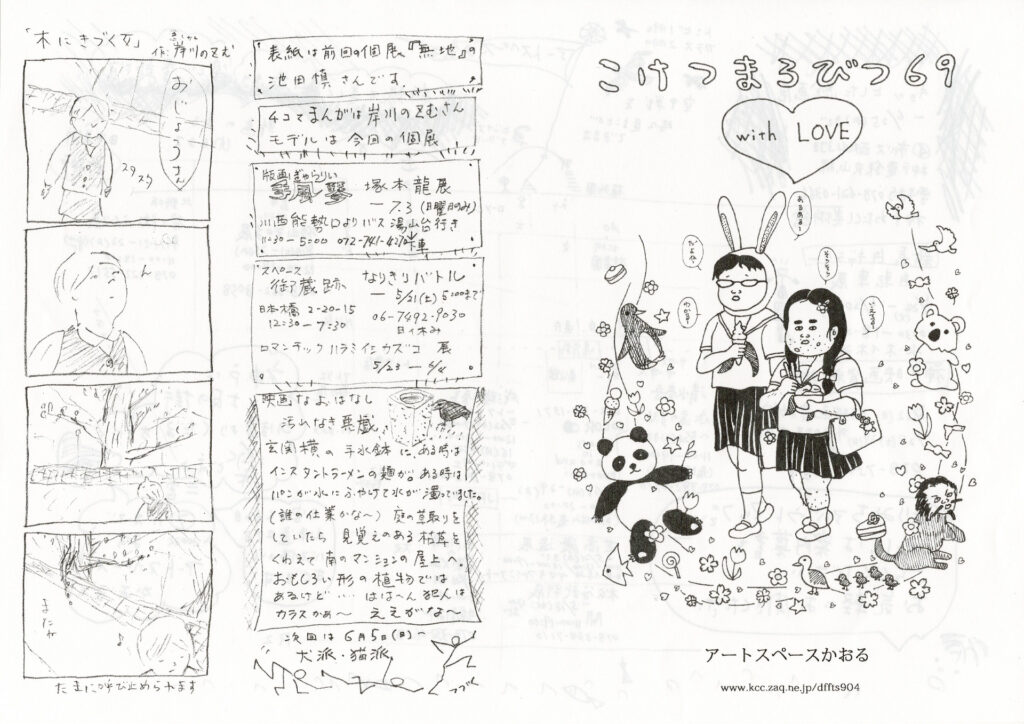 「木にきづく女」
作:岸川のぞむ
おじょうさん
スタスタ
ん
またね
たまに呼び止められます
表紙は前回の個展『無地』の
池田慎さんです。
4コマまんがは岸川のぞむさん
モデルは今回の個展
版画ぎゃらりい
塚本龍展
ー7.3(日曜日のみ)
川西能勢口よりバス湯山台行き
11:30ー5:00 072-741-4570
スペース
御蔵跡
なりきりバトル
ー5/21(土)5:00まで
日本橋 2-20-15
06-7492-9030
12:30ー7:30
ロマンチックハラミイシカズコ 展
5/23ー6/4
映画なよ、はなし
汚れなき悪戯
玄関横の手水鉢に、ある時は
インスタントラーメンの麺が。ある時は
パンが水にふやけて水が濁っていました。
(誰の仕業かな〜)庭の草取りを
していたら 見覚えのある枯草を
くわえて南のマンションの屋上へ。
おもしろい形の植物では
あるけど… ははーん 犯人は
カラスかぁ〜 ええがな〜
次回は6月5日(日)〜
犬派・猫派
つづく
こけつまろびつ69
with LOVE
あるある〜
だよね〜
そうそう
わかる〜
いえてる〜
アートスペースかおる
www.kcc.zaq.ne.jp/dffts904